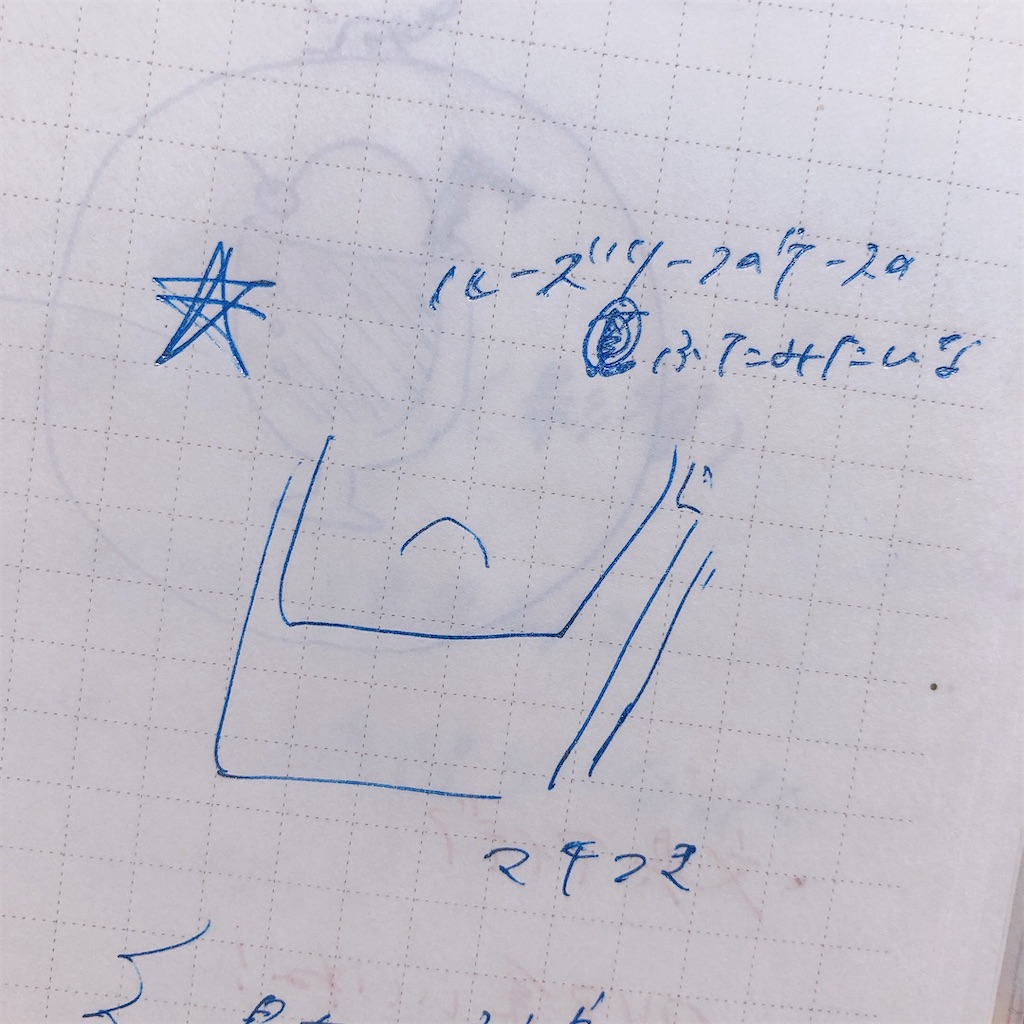 ルーズリーフのケースの
ふたみたいな
マチつき